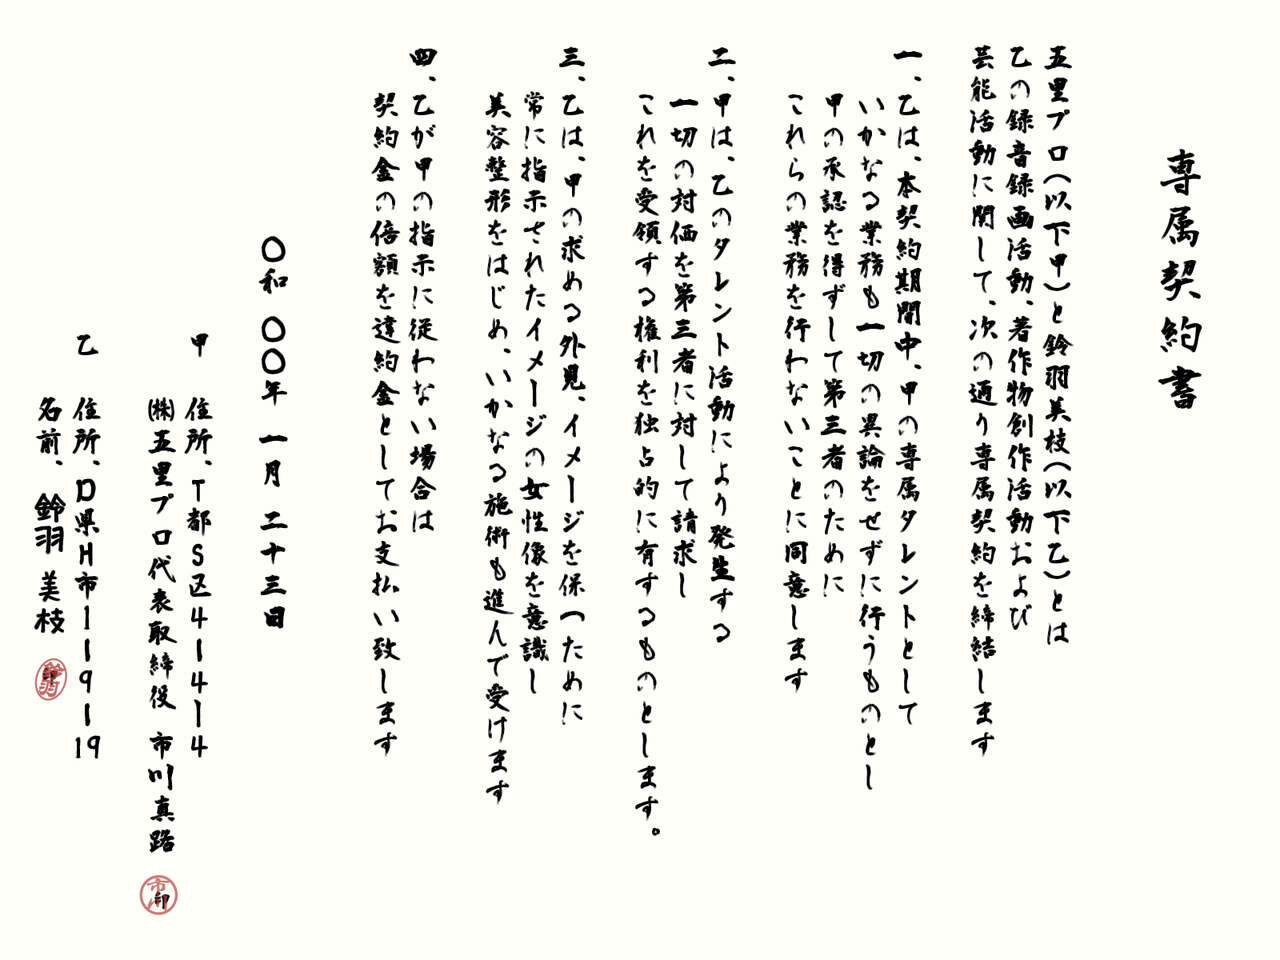 専属契約書
五里プロ(以下甲)と鈴羽美枝(以下乙)とは
乙の録音録画活動、著作物創作活動および
芸能活動に関して、次の通り専属契約を締結します
一、乙は、本契約期間中、甲の専属タレントとして
いかなる業務も一切の異論をせずに行うものとし
甲の承認を得ずして第三者のために
これらの業務を行わないことに同意します
二、甲は、乙のタレント活動により発生する
一切の対価を第三者に対して請求し
これを受領する権利を独占的に有するものとします。
三、乙は、甲の求める外見、イメージを保つために
常に指示されたイメージの女性像を意識し
美容整形をはじめ、いかなる施術も進んで受けます
四、乙が甲の指示に従わない場合は
契約金の倍額を違約金としてお支払い致します
〇和 〇〇年 一月 二十三日
甲 住所、T都S区4ー4ー4
㈱五里プロ代表取締役 市川真路
市川 印
乙 住所、D県H市ー119ー19
名前、鈴羽 美枝
鈴羽 印